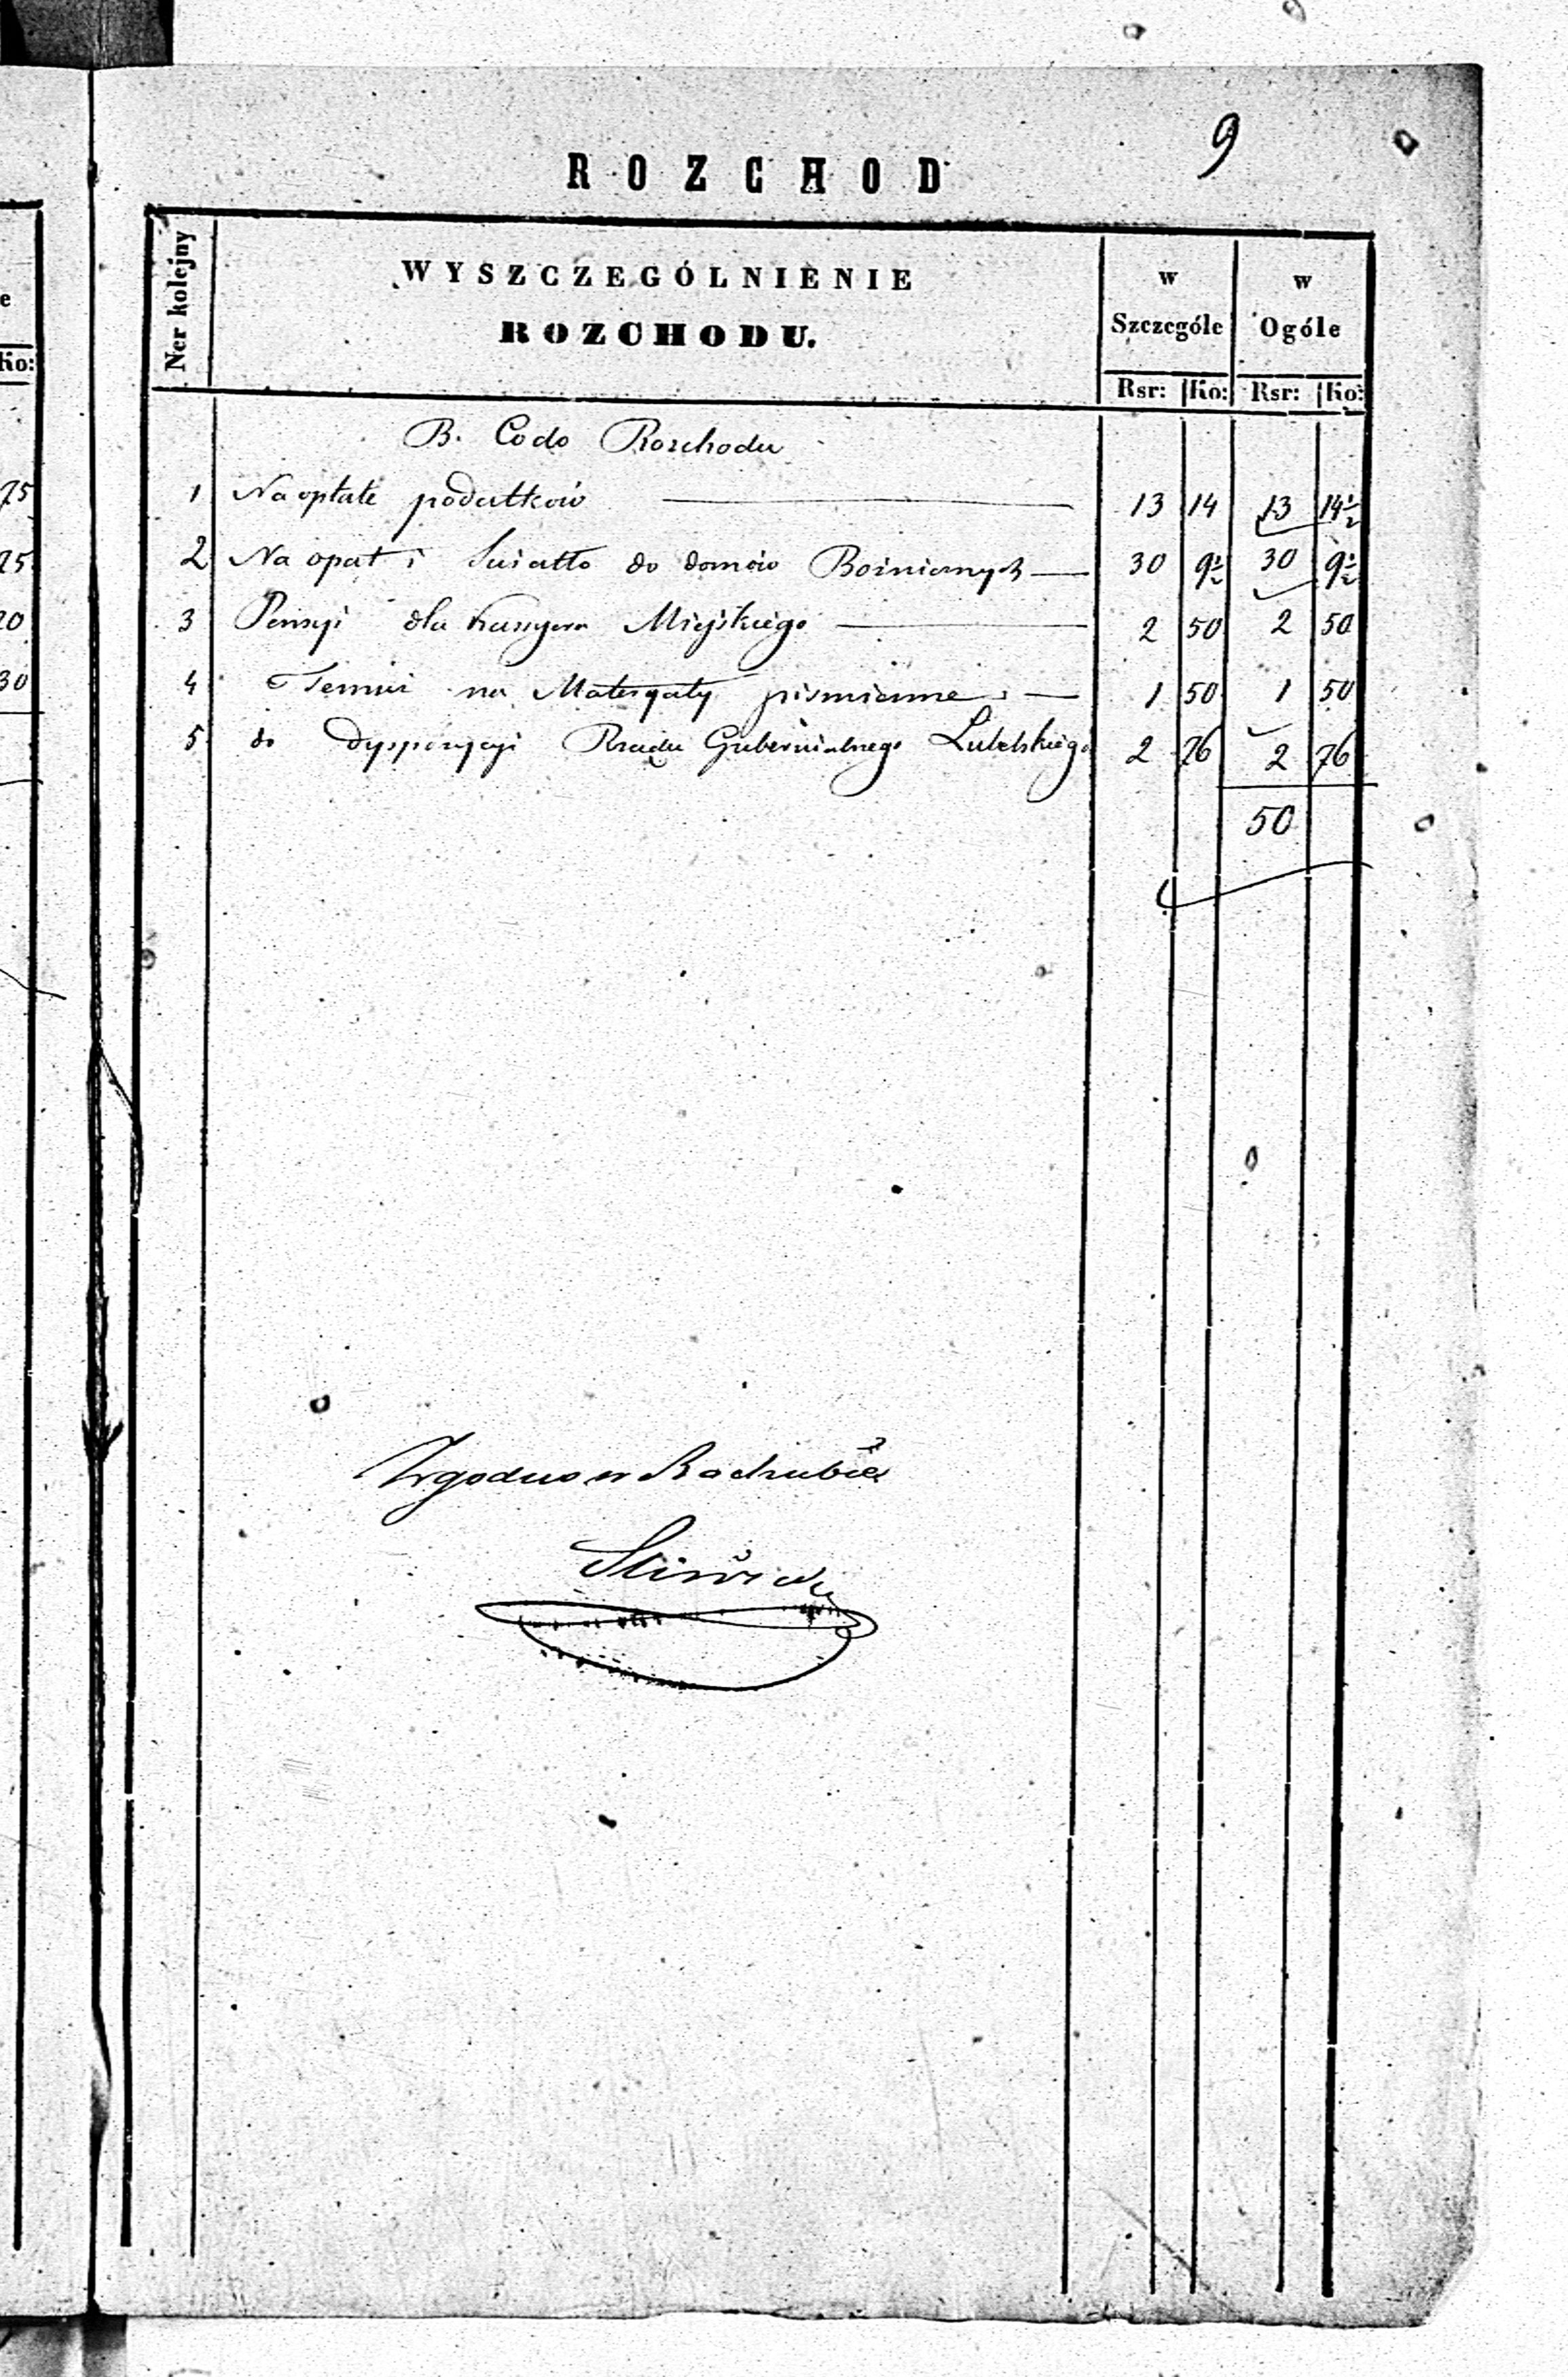 9
ROZCHOD
Ner kolejny
WYSZCZEGÓLNIENIE
ROZCHODU.
w Szczególe
w Ogóle
Rsr: Ko: Rsr: Ko:
B. Co do Rozchodu
1 Na opłatę podatków 13 14 13 14½
2 Na opał i światło do domów Bożnicznych 30 9½ 30 9½
3 Pensyi dla Kassyera Miejskiego 2 50 2 50
4 Temuż na Materyały piśmienne 1 50 1 50
5 do dyspozycyi Rządu Gubernialnego Lubelskiego 2 76 2 76
50
Zgodno w Rachubie
e
Ko:
75
25
20
30